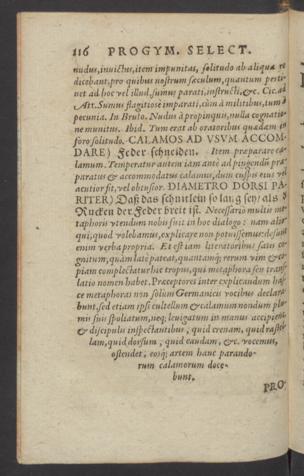 116 PROGYM. SELECT.
nudus, invictus, item impunitas, solitudo ab aliqua re
dicebant, pro quibus nostrum sæculum, quantum perti-
net ad hoc vel illud, sumus parati, instructi, &c. Cic. ad
Att. Sumus flagitiosè imparati, cùm à militibus, tum à
pecunia. In Bruto. Nudus à propinquis, nulla cognatio-
ne munitus. Ibid. Tum erat ab oratoribus quædam in
foro solitudo. CALAMOS AD VSVM ACCOM-
DARE) Feder schneiden. Item præparare ca-
lamum. Temperatur autem iam antè ad pingendū præ-
paratus & accommodatus calamus, dum cuspis eius vel
acutior fit, vel obtusior. DIAMETRO DORSI PA-
RITER) Daß das schnitlein so lang sey / als d
Rucken der Feder breit ist. Necessario multis me-
taphoris vtendum nobis fuit in hoc dialogo: nam alio-
qui, quod volebamus, explicare non potuissemus: desunt
enim verba propria. Et est iam literatoribus satis co-
gnitum, quàm latè pateat, quantamq; rerum vim & co-
piam complectatur hic tropus, qui metaphora seu trans-
latio nomen habet. Præceptores inter explicandum has-
ce metaphoras non solùm Germanicis vocibus declara-
bunt, sed etiam ipsi cultellum & calamum nondum plu-
mis suis spoliatum, neq; leuigatum in manus accipient,
& discipulis inspectantibus, quid crenam, quid rastel-
lum, quid dorsum, quid caudam, &c. vocemus,
ostendet, eosq; artem hanc parando-
rum calamorum doce-
bunt.
PRO-